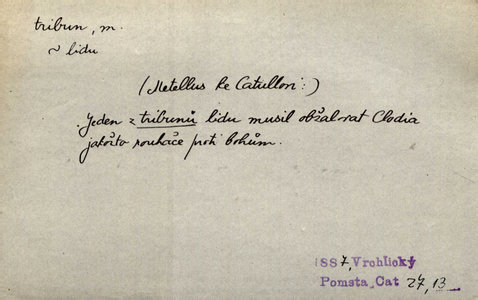 tribun, m.
~ lidu
(Metellus ke Catullovi:)
Jeden z tribunů lidu musil obžalovat Clodia
jakožto rouhače proti bohům.
1887, Vrchlický
Pomsta, Cat 27, 13